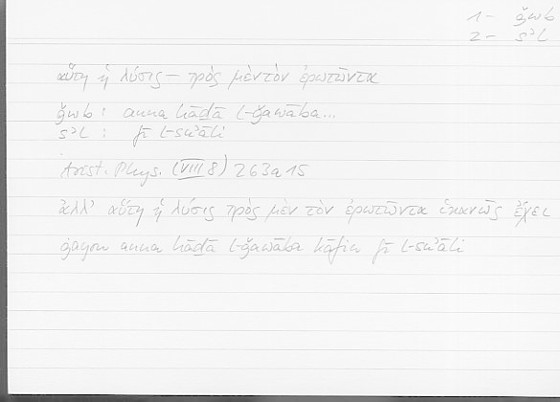 1 – ǧwb
2 – sʾl
αὕτη ἡ λύσις – πρὸς μὲν τὸν ἐρωτῶντα
ǧwb : anna hāḏā l-ǧawāba...
sʾl : fī l-suʾāli
Arist. Phys. (VIII 8) 263a15
ἀλλ’ αὕτη ἡ λύσις πρὸς μὲν τὸν ἐρωτῶντα ἱκανῶς ἔχει
ġayru anna hāḏā l-ǧawāba kāfin fī l-suʾāli